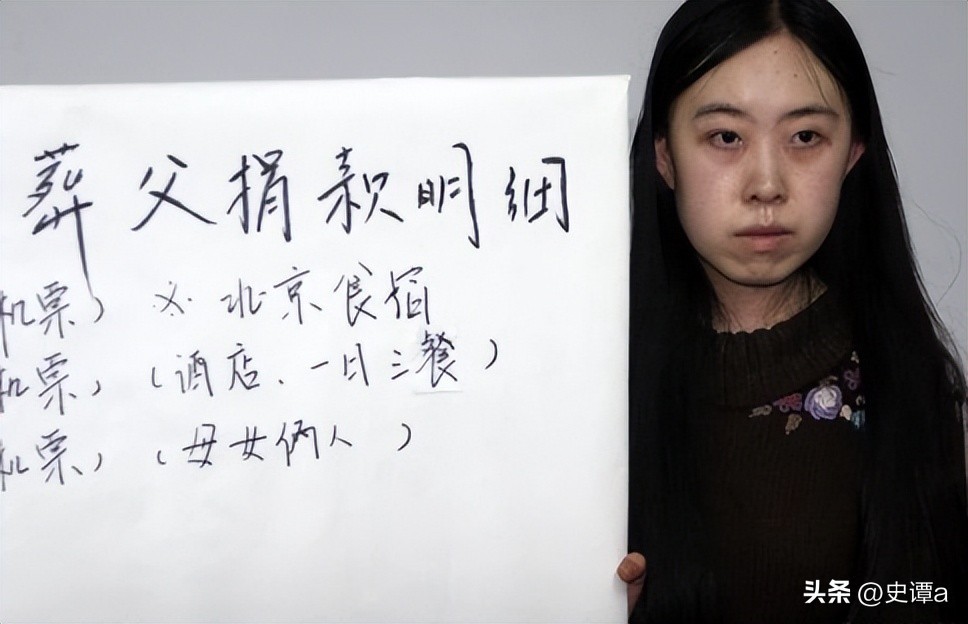 葬父捐款明细
机票) ※北京食宿
机票) (酒店、一日三餐)
机票) (母女俩人)
头条 @史谭a